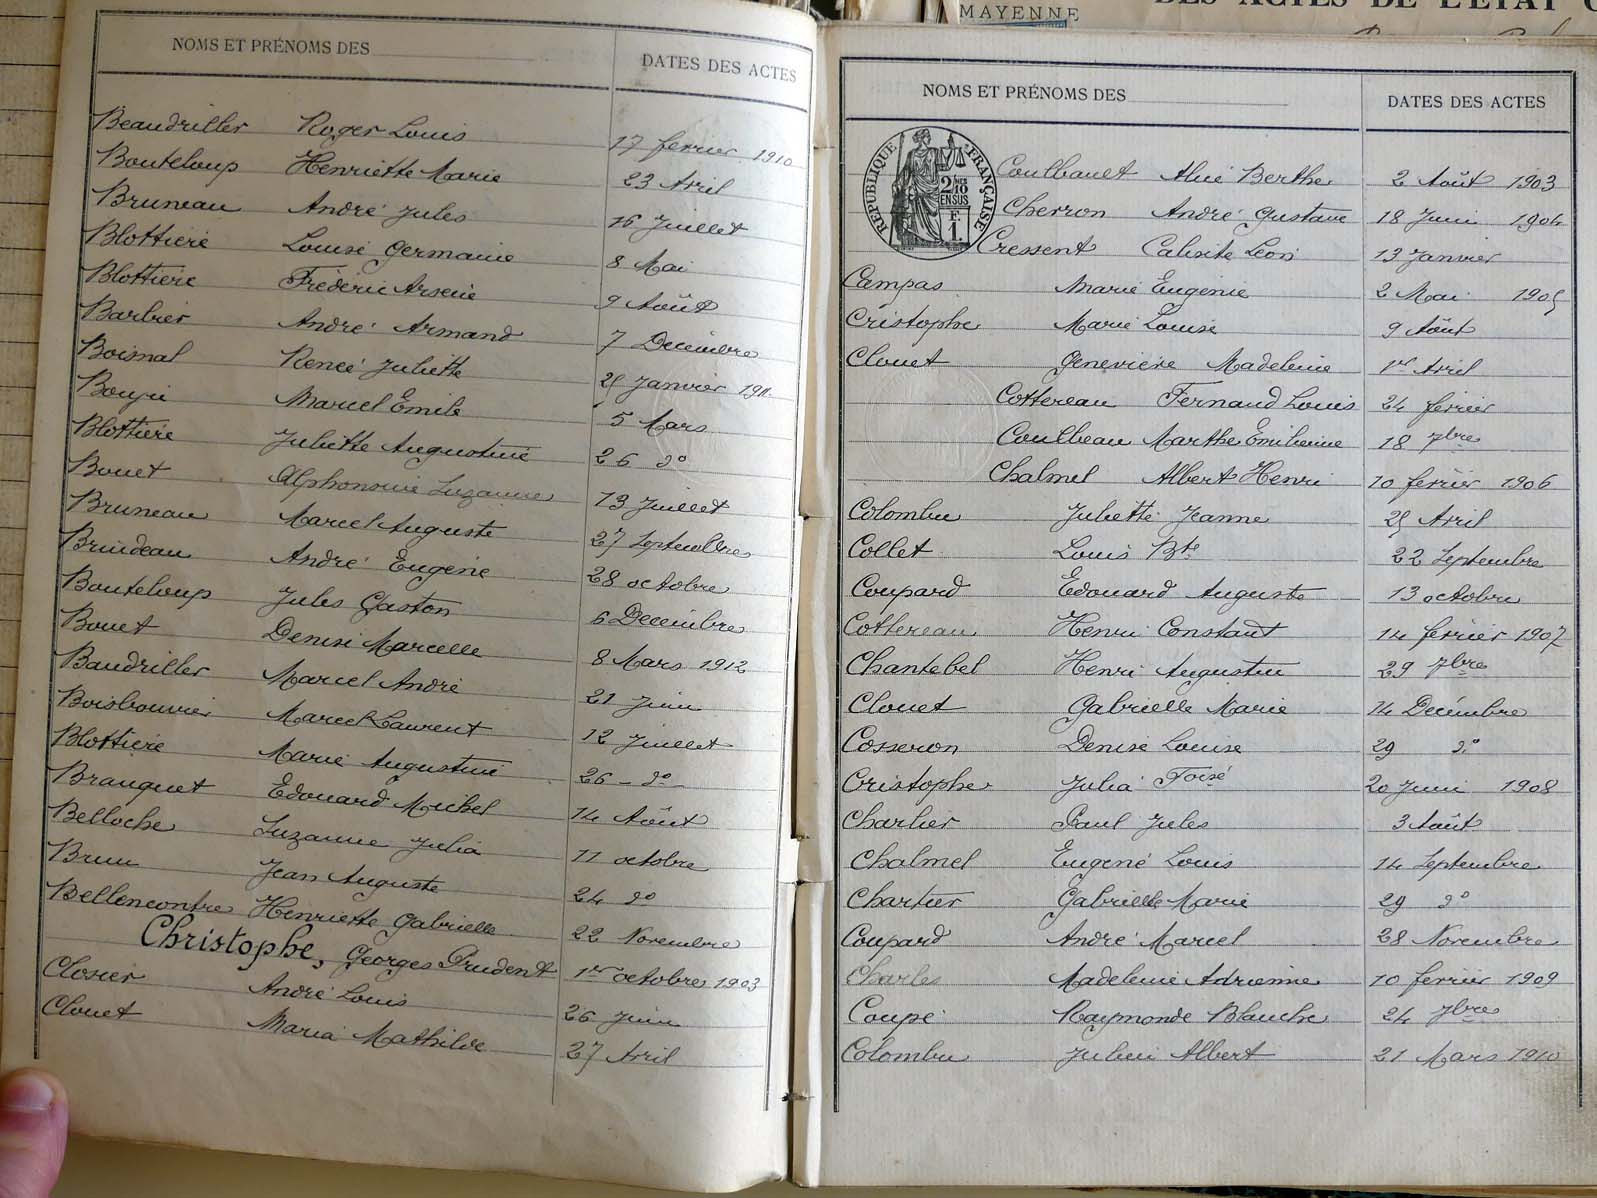 NOMS ET PRÉNOMS DES DATES DES ACTES
Beaudriller Roger Louis 17 fevrier 1910
Bouteloup Henriette Marie 23 Avril
Bruneau André Jules 16 Juillet
Blottiere Louise Germaine 8 Mai
Blottiere Fréderic Arsene 9 Août
Barbier André Armand 7 Decembre
Boisnal Reneé Juliette 25 Janvier 1911
Marcel Emile 5 Mars
Blottiere Juliette Augustine 26 do
Bouet Alphonsine Suzanne 13 Juillet
Bruneau Marcel Auguste 27 Septembre
Brindeau André Eugene 28 octobre
Bouteloup Jules Gaston 6 Decembre
Bouet Denise Marcelle 8 Mars 1912
Baudriller Marcel André 21 Juin
Boisbouvier Marcel Laurent 12 Juillet
Blottiere Marie Augustine 26 - do
Brauquet Edouard Michel 14 Août
Belloche Suzanne Julia 11 octobre
Brun Jean Auguste 24 do
Bellencontre Henriette Gabrielle 22 Novembre
Christophe, Georges Prudent 1er octobre 1903
Closier André Louis 26 Juin
Clouet Maria Mathilde 27 Avril
MAYENNE
DES ACTES DE L'ÉTAT
NOMS ET PRÉNOMS DES DATES DES ACTES
RÉPUBLIQUE FRANÇAISE
2/10 EN SUS
F. 1.
Coulbauet Alice Berthe 2 Août 1903
Cherron André Gustave 18 Juin 1904
Cressent Calixte Léon 13 Janvier
Campas Marie Eugenie 2 Mai 1905
Cristophe Marie Louise 9 Août
Clouet Genevieve Madeleine 1er Avril
Cottereau Fernand Louis 24 fevrier
Coulbeau Marthe Emilienne 18 7bre
Chalmel Albert Henri 10 fevrier 1906
Colombu Juliette Jeanne 25 Avril
Collet Louis Bte 22 Septembre
Coupard Edouard Auguste 13 octobre
Cottereau Henri Constant 14 fevrier 1907
Chantebel Henri Augustin 29 7bre
Clouet Gabrielle Marie 14 Décembre
Cosseron Denise Louise 29 do
Cristophe Julia 20 Juin 1908
Charlier Paul Jules 3 Août
Chalmel Eugene Louis 14 Septembre
Chartier Gabrielle Marie 29 do
Coupard André Marcel 28 Novembre
Charles Madeleine Adrienne 10 fevrier 1909
Coupé Raymonde Blanche 24 7bre
Colombu Julien Albert 21 Mars 1910